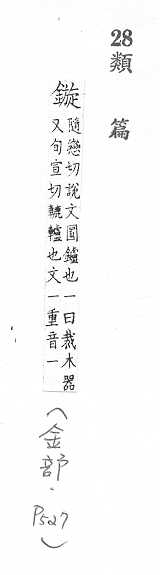 28
類篇
鏇隨戀切說文圜鑪也一曰裁木器
又旬宣切轆轤也文一重音一
(金部.P527)